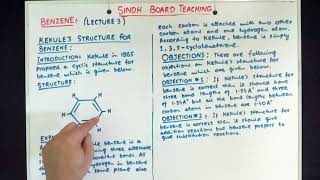 SINDH BOARD TEACHING
BENZENE: (LECTURE 3)
KEKULE'S STRUCTURE FOR
BENZENE:
INTRODUCTION: Kekule in 1865
proposed a cyclic structure for
benzene which is given below.
STRUCTURE:
H
H
H
H
benzene is a
three alternate
covalent bonds. All
hydrogen in benzene
same plane also
each carbon is attached with two other
carbon atoms and one hydrogen atom.
According to Kekule, benzene is simply
1,3,5-cyclohexatriene.
OBJECTIONS: There are following
objections on Kekule's structure for
benzene which are given below.
OBJECTION #1: If Kekule's structure for
benzene is correct then it should have
three bond lengths of 1.54A° and three
of 1.34A° but all the bond lengths between
carbon atoms in benzene are 1.40A°
OBJECTION #2: If Kekule's structure for
benzene is correct then it should give
addition reactions but benzene prefers to
give substitution reactions.